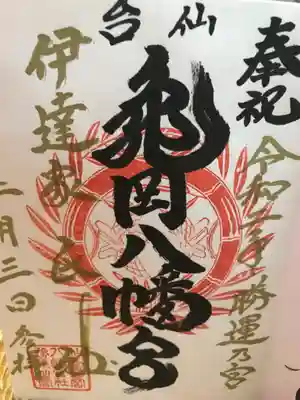 奉祝
令和二年 勝運乃宮
仙台
亀岡八幡宮
伊達家氏
二月三日参拝